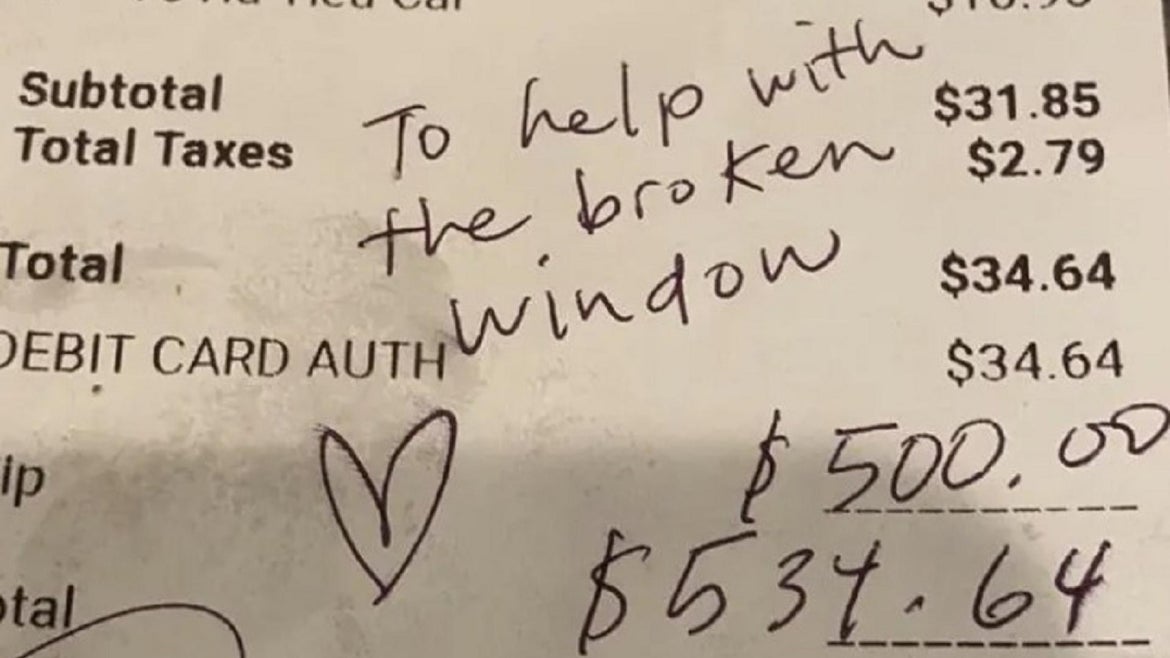 Subtotal $31.85
Total Taxes $2.79
To help with
the broken
window
Total $34.64
DEBIT CARD AUTH $34.64
ip $500.00
otal $534.64